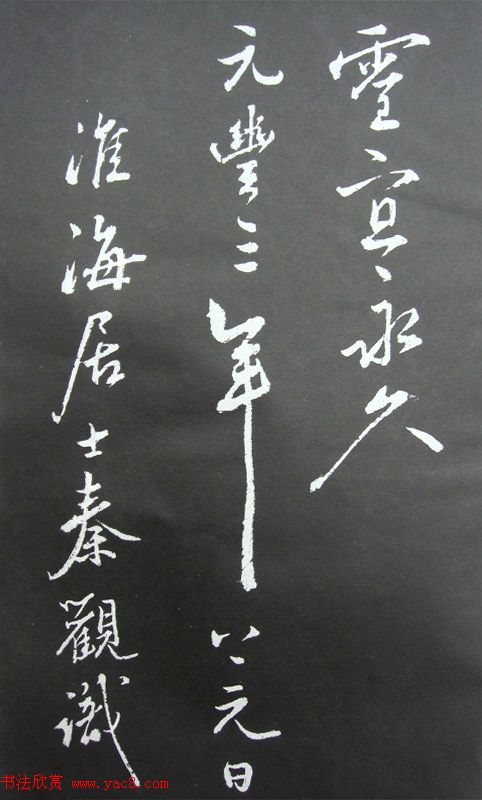 靈宜永久
元豐三年八元日
淮海居士秦觀識
书法欣赏 www.yac8.com